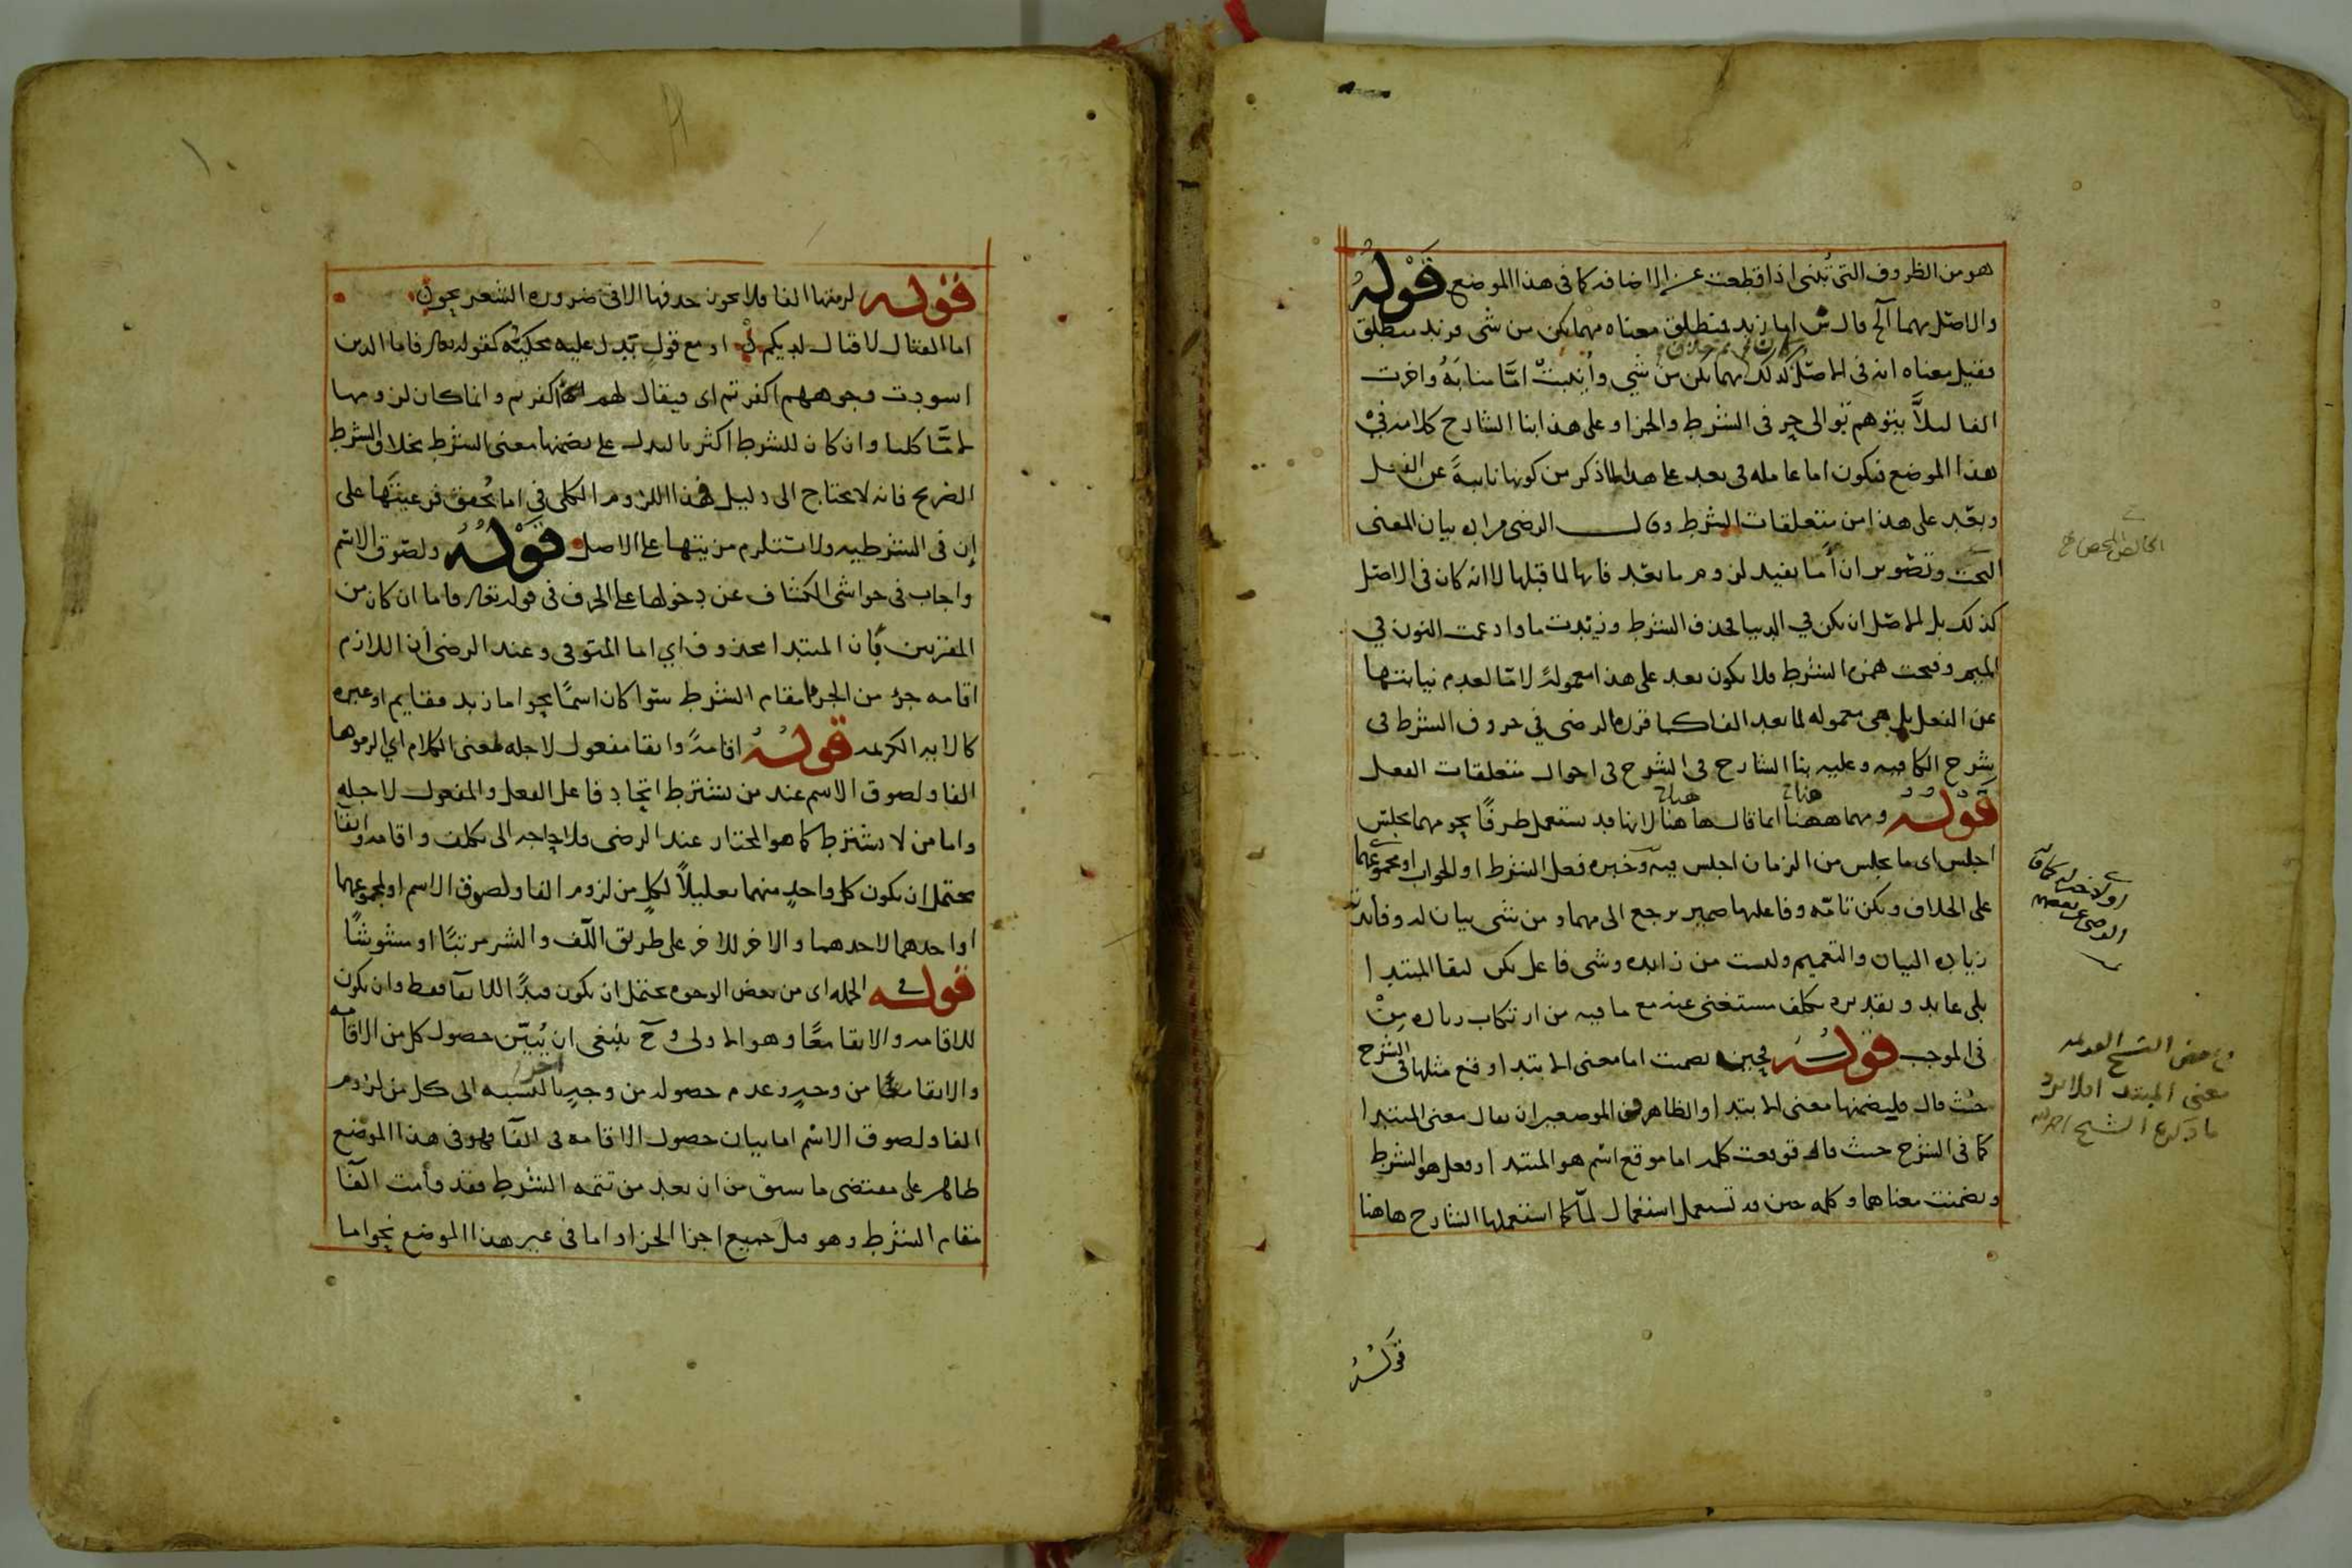 هو من الظروف التي تُبنى اذا قطعت عن الاضافه كما في هذا الموضع قَوْلُهُ
والاصل مهما آلخ قال ش اما زيد فمنطلق معناه مهما يكن من شى فزيد منطلق
فقيل معناه انه فى الاصل كذلك مهما يكن من شي وأُنيبتْ امَّا منابَهُ واخرت
الفا ليلاَّ يتوهم توالى حر فى الشرط والجزا وعلى هذا ابنا الشارح كلامه في
هذا الموضع فيكون اما عامله فى بعد على هذا لما ذكر من كونها نايبةً عن الفعل
وبعد على هذا من متعلقات الشرط وقال الرضى مراده بيان المعنى
البحت وتصوير ان أما يفيد لزوم ما بعد فايها لما قبلها لا انه كان فى الاصل
كذلك بل الاصل ان يكن في الدنيا فحذف الشرط وزيدت ما وادغمت النون في
الميم وفتحت همزه الشرط فلا يكون بعد على هذا معمولةً لامّا لعدم نيابتها
عن الفعل بل هي معموله لما بعد الفا كما قرره الرضى في حروف الشرط فى
شرح الكافيه وعليه بنا الشارح في الشرح فى احوال متعلقات الفعل
قَوْلُهُ ومهما ههنا انما قال هاهنا لانها قد تستعمل ظرفًا نحو مهما تجلس
اجلس اى ما تجلس من الزمان اجلس فيه وخبره فعل الشرط او الجواب او مجموعهما
على الخلاف ويكن تامّه وفاعلها ضمير يرجع الى مهما ومن شى بيان له وفايدته
زياده البيان والتعميم وليست من زايده وشى فاعل يكن لبقا المبتدا
بلى عايد وتقديره تكلف مستغنى عنه مع ما فيه من ارتكاب زياده مِنْ
فى الموجب قولُه فحين تضمنت اما معنى الابتدا وقع مثلها في الشرح
حيث قال فليضمنها معنى الابتدا والظاهر فى الموضعين ان يقال معنى المبتدا
كما فى الشرح حيث قال فوقعت كلمه اما موقع اسْم هو المبتدا وفعل هو الشرط
وتضمنت معناهما وكلمه حين قد تستعمل استعمال لمّا كما استعملها الشارح هاهنا
قَوْلُهُ
قوله لزمتها الفا فلا يجوز حذفها الا في ضروره الشعر نحو
اما القتال لا قتال لديكم او مع قولٍ يَدل عليه محكيُّه كقوله تعالى فاما الذين
اسودت وجوههم اكفرتم اى فيقال لهم اكفرتم وانما كان لزومها
لامَّا كليا وان كان للشرط اكثريا ليدل على تضمنها معنى الشرط بخلاف الشرط
الصريح فانه لا يحتاج الى دليل فهذا اللزوم الكلى في اما يُحقق فرعيتَها على
إن فى الشرطيه ولا تستلزم مزيتها على الاصل قَوْلُهُ ولصوق الاسم
واجاب فى حواشى الكشاف عن دخولها على الحرف في قوله تعالى فاما ان كان من
المقربين بأن المبتدا محذوف اي اما المتوفى وعند الرضى أن اللازم
اقامه جزء من الجزا مقام الشرط سوا كان اسمًا نحو اما زيد فقايم او غيره
كالايه الكريمه قولُهُ اقامةً وابقا مفعول لاجله لمعنى الكلام اي الزموها
الفا ولصوق الاسم عند من يشترط اتحاد فاعل الفعل والمفعول لاجله
واما من لا يشترط كما هو المختار عند الرضى فلا حاجه الى تكلف واقامه وابقا
يحتمل ان يكون كل واحدٍ منهما تعليلاً لكلٍ من لزوم الفا ولصوق الاسم او لمجموعهما
او احدهما لاحدهما والاخر للاخر على طريق اللّف والنشر مرتبًا او مشوشًا
قوله في الجمله اى من بعض الوجوه يحتمل ان يكون قيدًا للابقا فقط وان يكون
للاقامه والابقا معًا وهو الاولى وحَ ينبغى ان يُبيَّن حصول كل من الاقامه
والابقا من وجهٍ وعدم حصوله من وجهٍ اخر بالنسبه الى كل من لزوم
الفا ولصوق الاسم اما بيان حصول الاقامه فى الفا فهو فى هذا الموضع
ظاهر على مقتضى ما سبق من ان بعد من تتمه الشرط فقد قامت الفا
مقام الشرط وهو قبل جميع اجزا الجزا واما فى غير هذا الموضع نحو اما